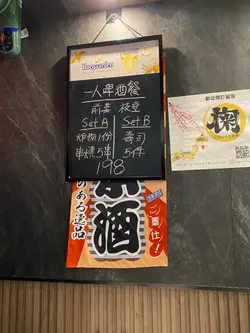 Hoegaarden
一人啤酒餐
前菜：枝豆
Set A
炸物1份
串燒5串
Set B
壽司
5件
198
歡迎預訂留座
掬
酒
ご奉仕!
のある逸品